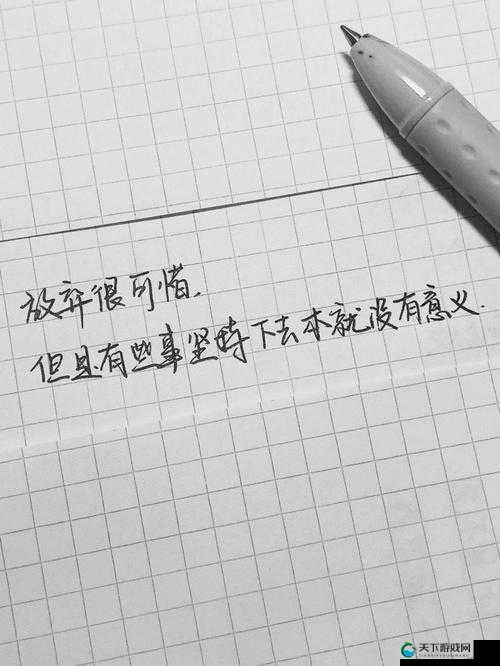 放弃很可惜.
但是有些事坚持下去本就没有意义.
天下游戏网